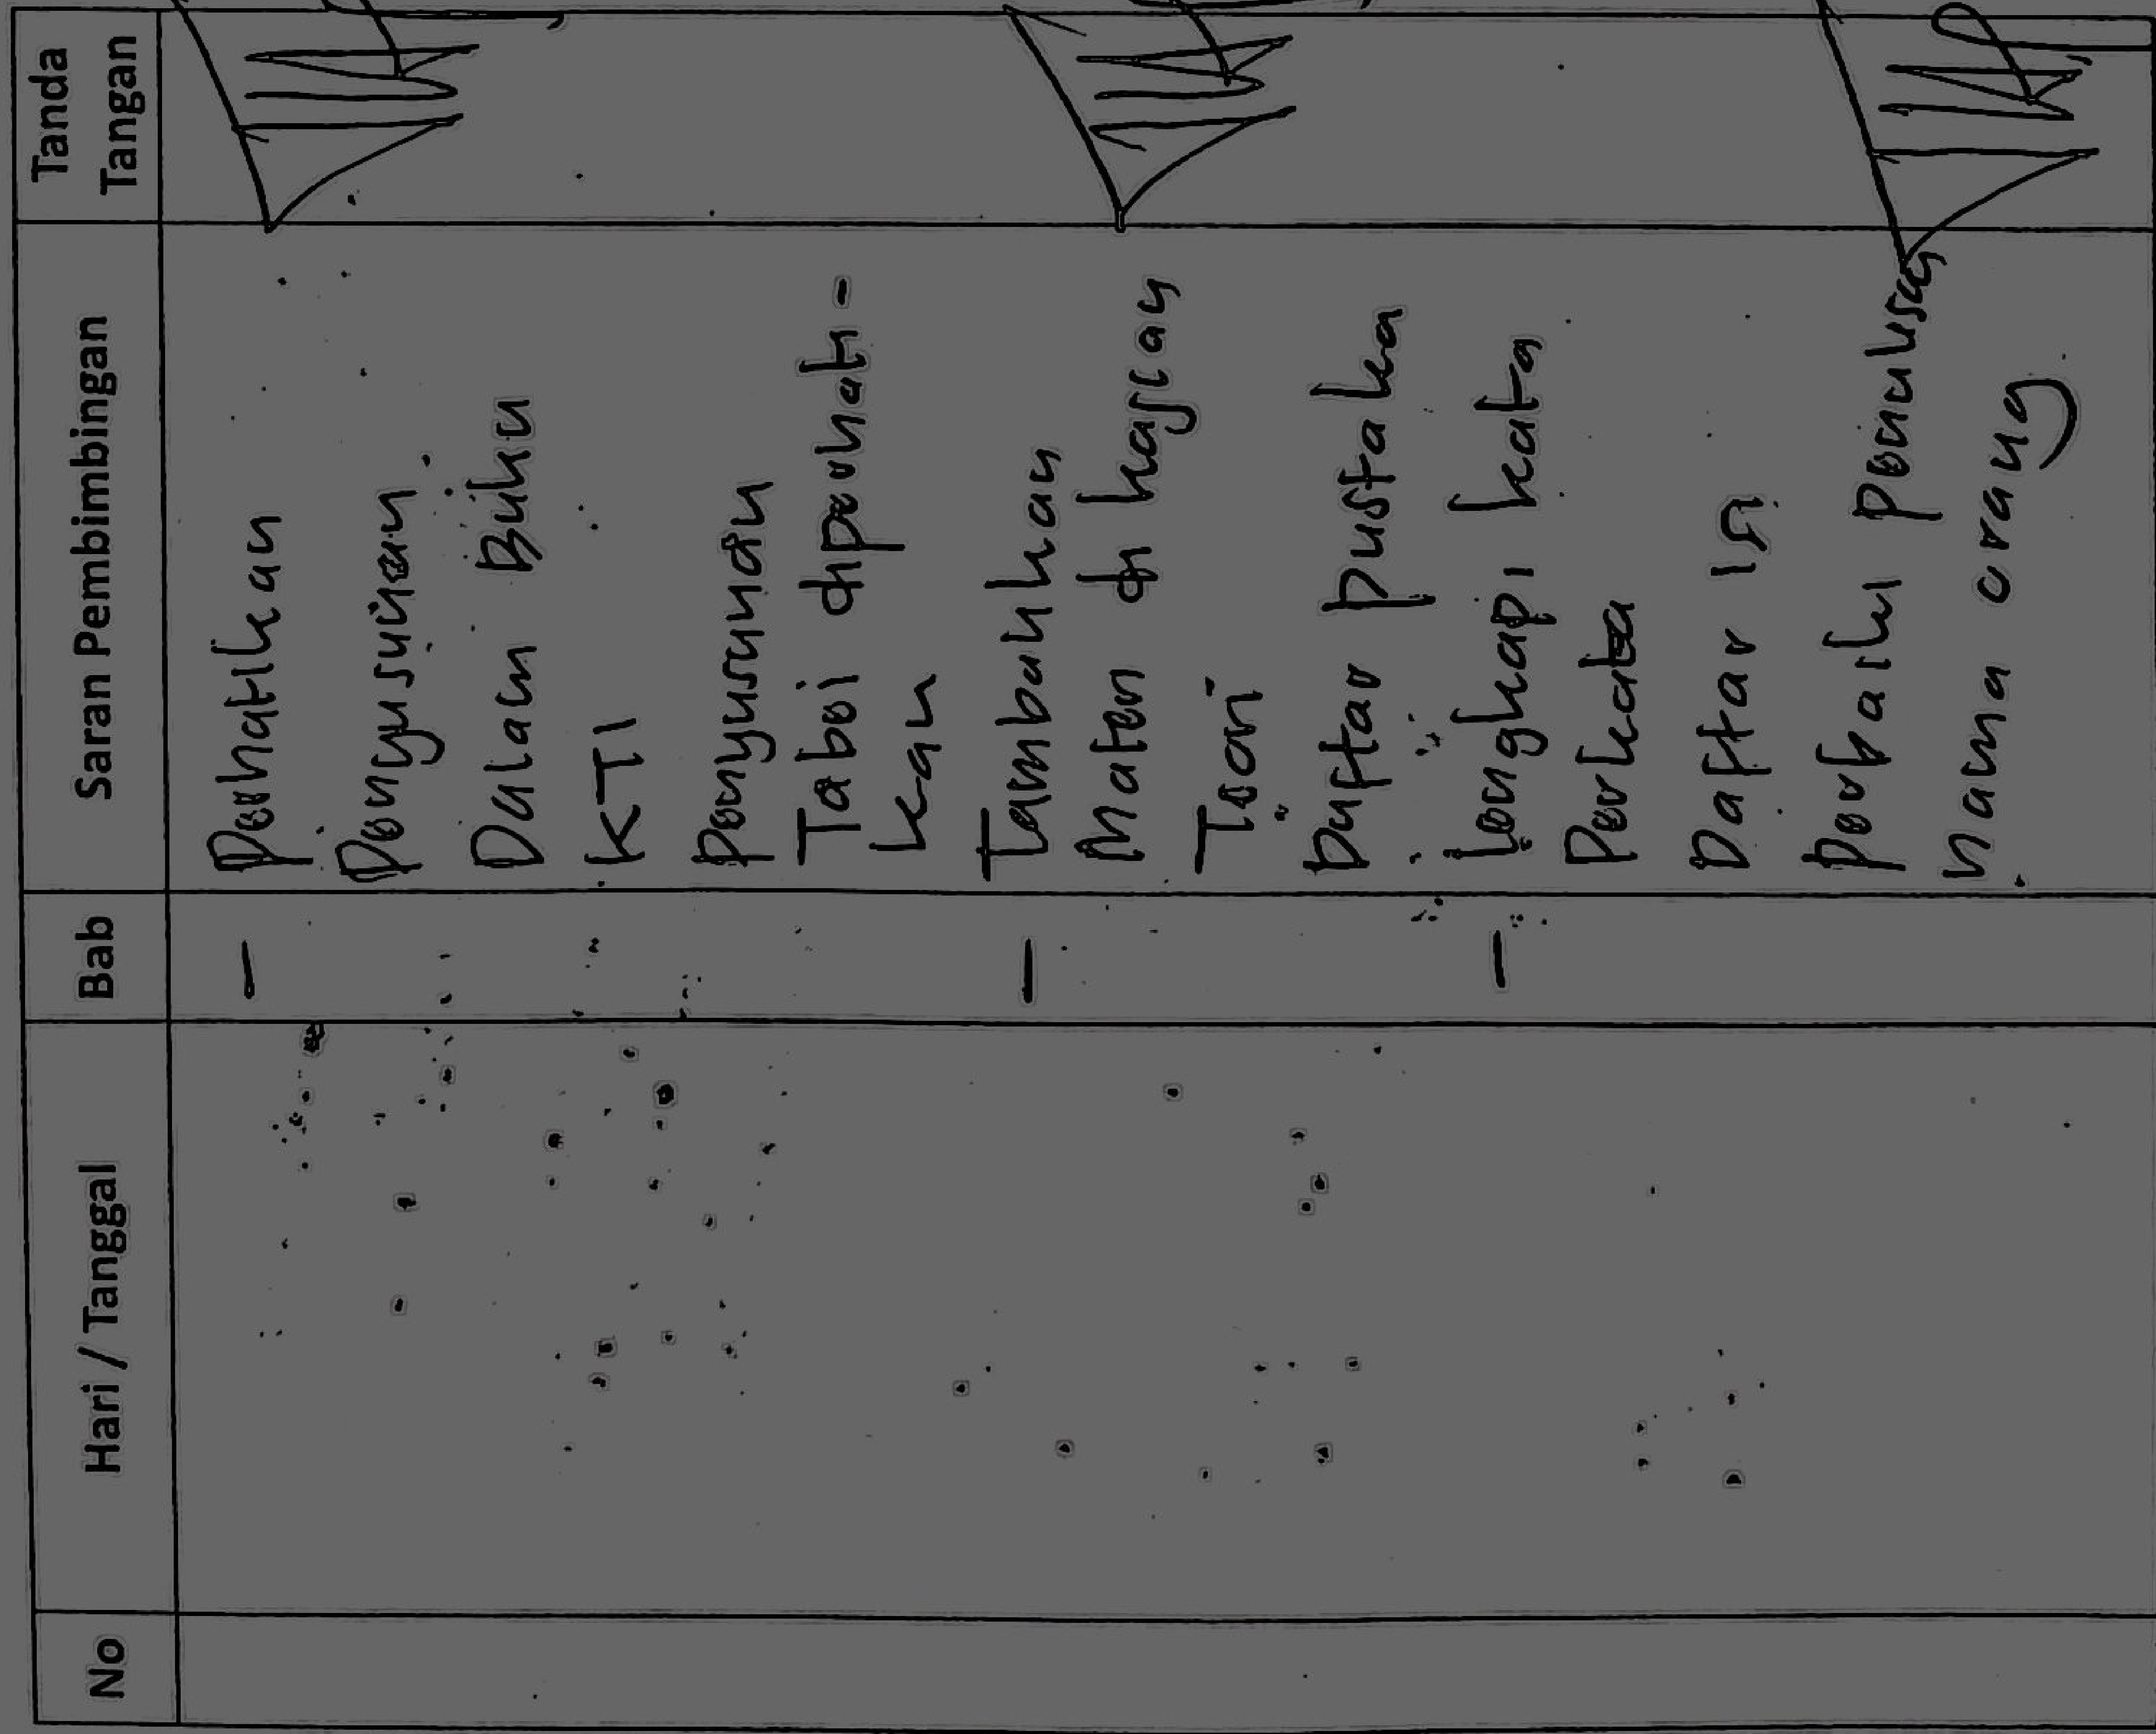 No Hari / Tanggal Bab Saran Pembimbingan Tanda Tangan
— Perhatikan
Penyusunan
Dalam Buku
KTI
Penyusunan
Tabel diperhati-
kan
— Tambahkan
Materi di kajian
Teori
Daftar pustaka
— Lengkapi kata
Perkata
Daftar isi
Perbaiki Penulisan
nama orang